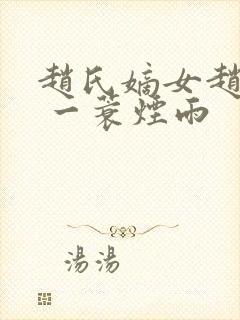 趙氏嫡女趙
一蓑煙雨
湯湯